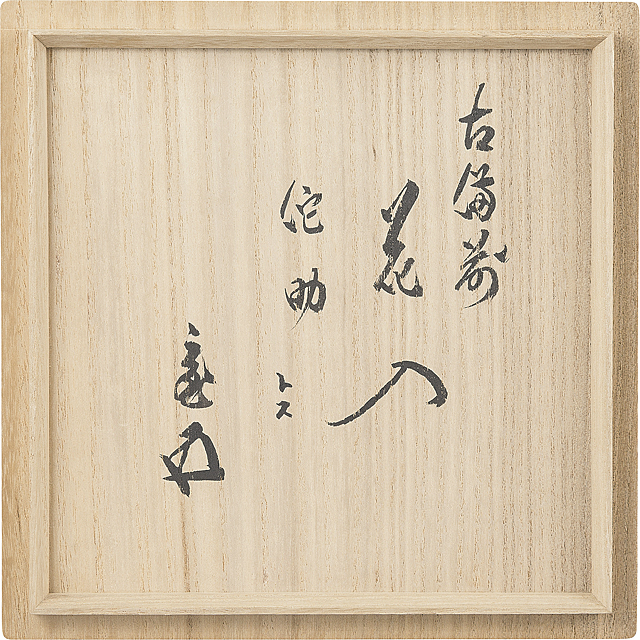 古備前
花入
佗助
トス